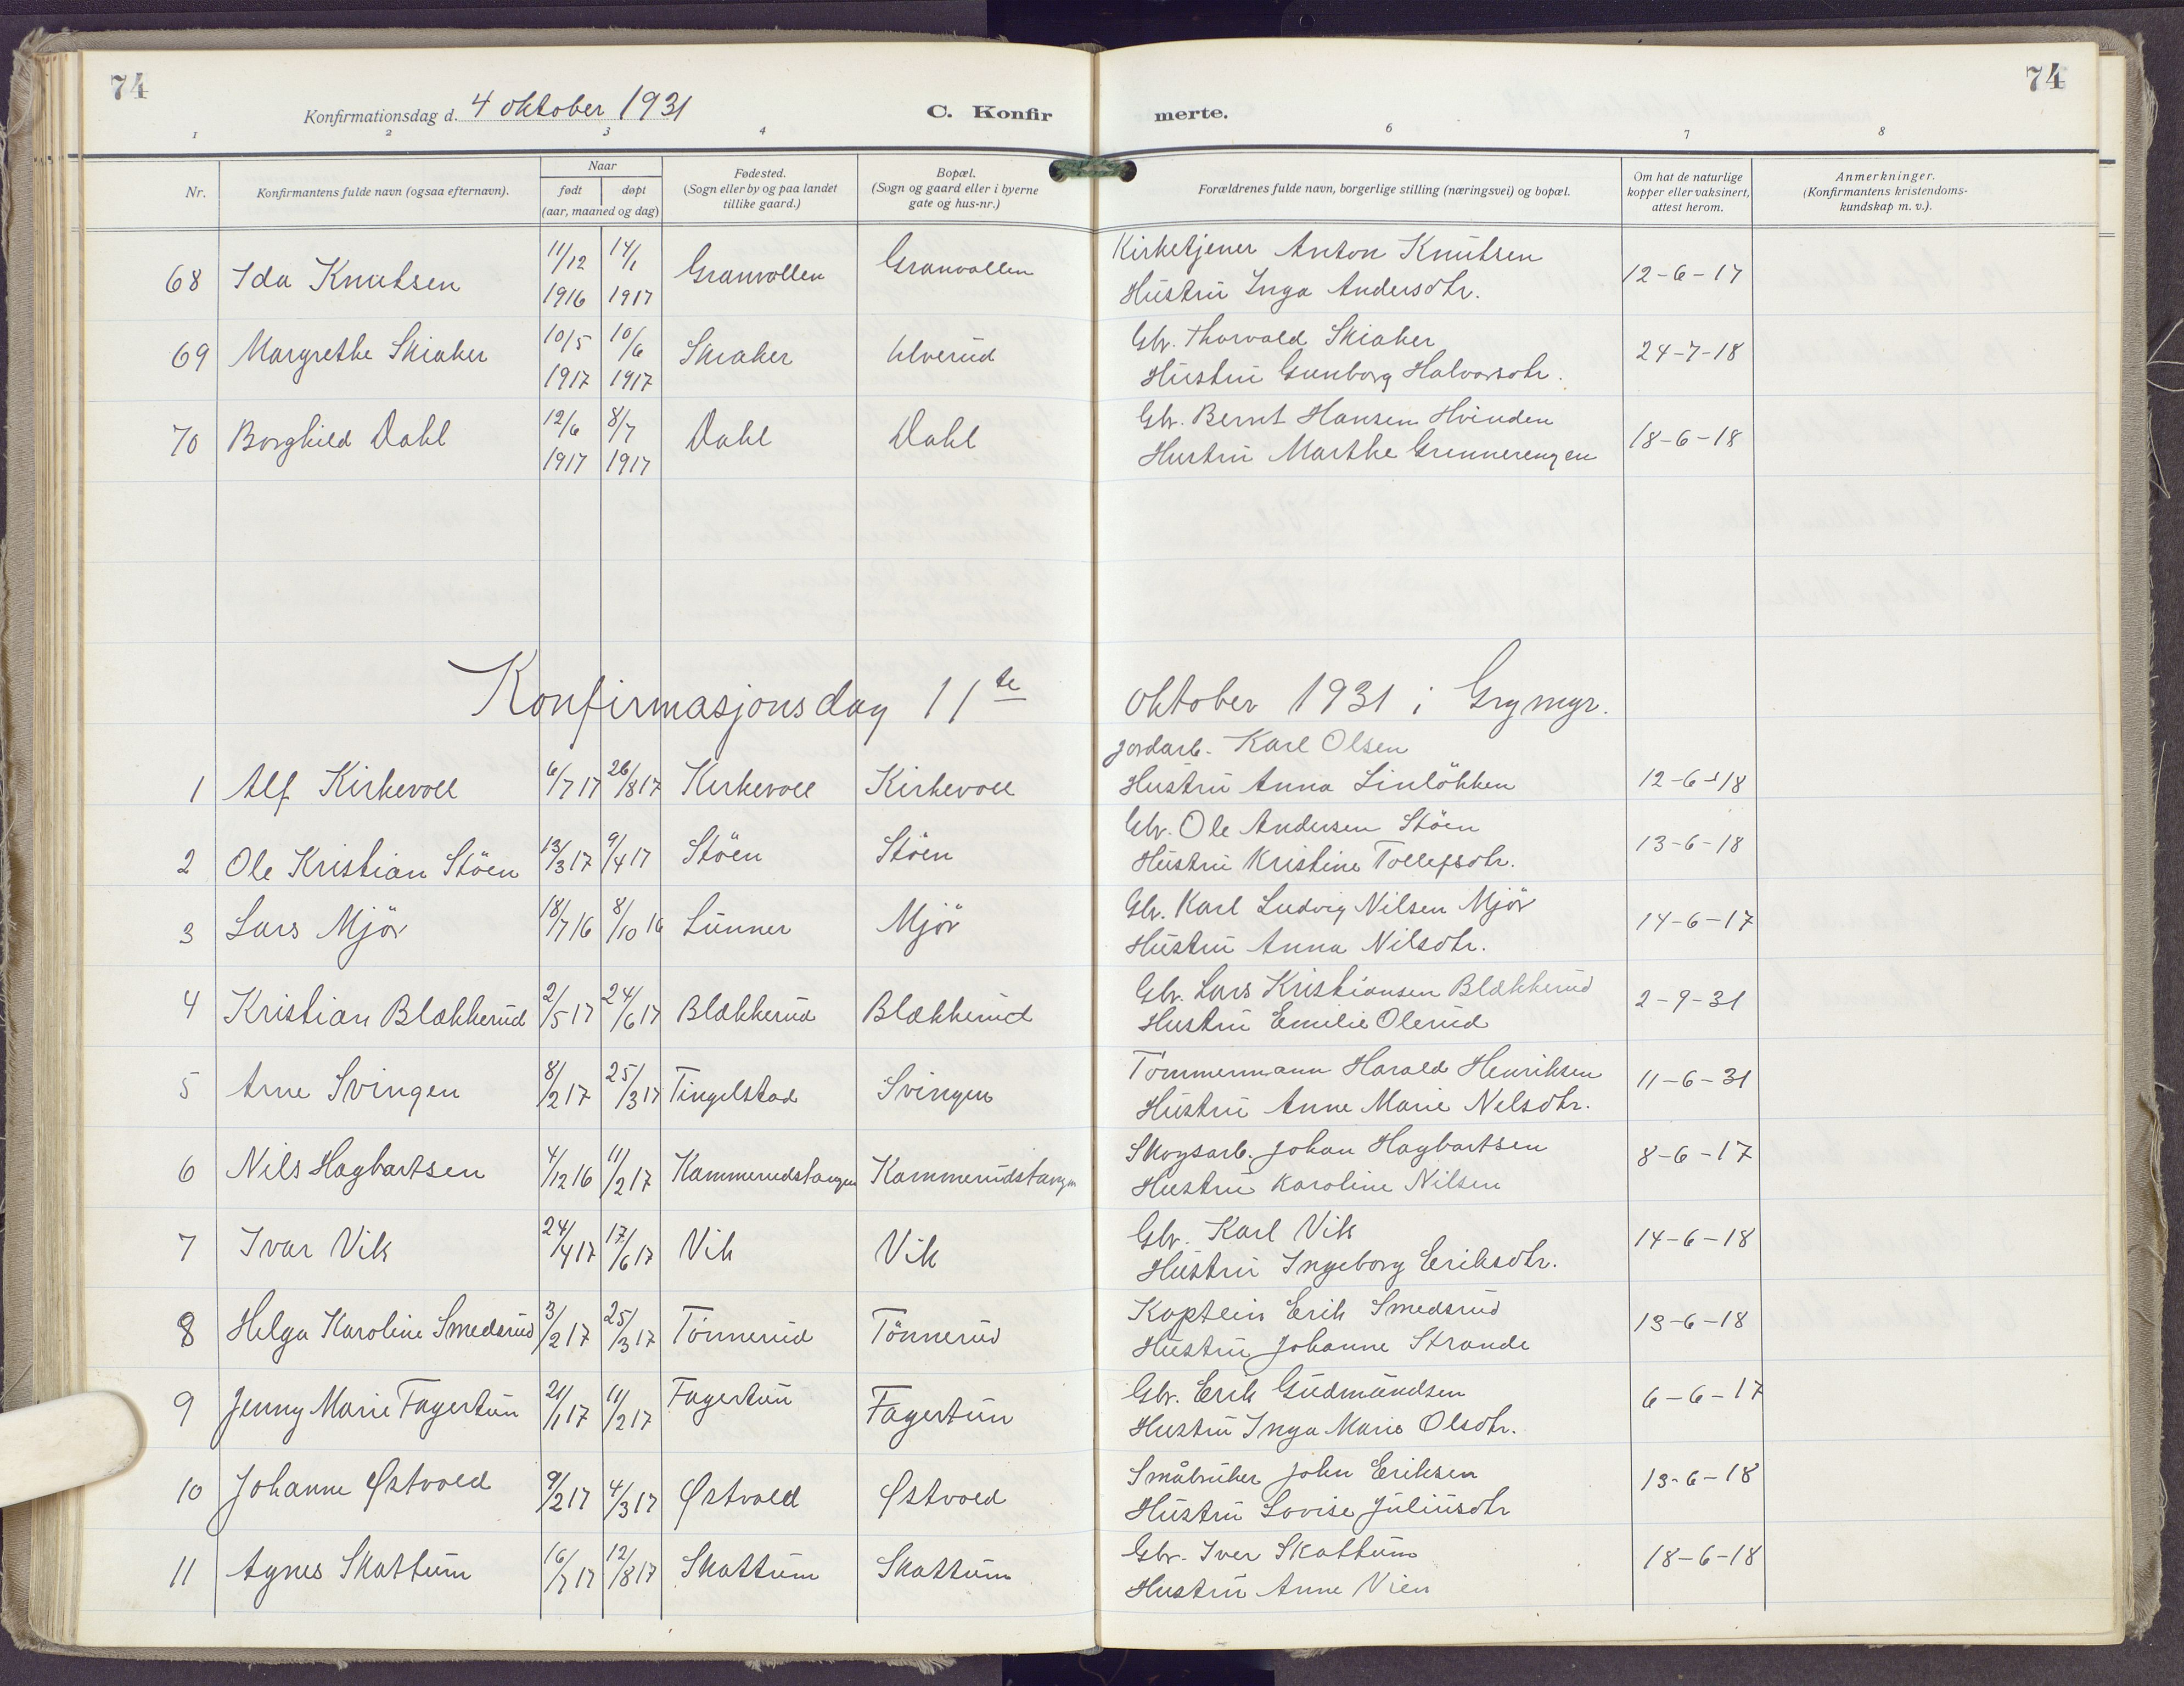 74
Konfirmationsdag d. 4 oktober 1931
C. Konfirmerte.
74
1 2 3 4 6 7 8
Nr. Konfirmantens fulde navn (ogsaa efternavn). Naar født døpt (aar, maaned og dag) Fødested. (Sogn eller by og paa landet tillike gaard.) Bopæl. (Sogn og gaard eller i byerne gate og hus-nr.) Forældrenes fulde navn, borgerlige stilling (næringsvei) og bopæl. Om hat de naturlige kopper eller vaksinert, attest herom. Anmerkninger. (Konfirmantens kristendoms-kundskap m. v.).
68 Ida Knutsen 11/12 1916 14/1 1917 Granvollen Granvollen Kirketjener Anton Knutsen 12-6-17
Hustru Inga Andersdtr.
69 Margrethe Skiaker 10/5 1917 10/6 1917 Skiaker Ulverud Gbr. Thorvald Skiaker 24-7-18
Hustru Gunborg Halvorsdtr.
70 Borghild Dahl 12/6 1917 8/7 1917 Dahl Dahl Gbr. Bernt Hansen Hvinden 18-6-18
Hustru Marthe Grinnerengen
Konfirmasjonsdag 11te oktober 1931 i Grymyr.
1 Alf Kirkevoll 6/7 17 26/8 17 Kirkevoll Kirkevoll Jordarb. Karl Olsen 12-6-18
Hustru Anna Linløkken
2 Ole Kristian Støen 13/3 17 9/4 17 Støen Støen Gbr. Ole Andersen Støen 13-6-18
Hustru Kristine Tollefsdtr.
3 Lars Mjør 18/7 16 8/10 16 Lunner Mjør Gbr. Karl Ludvig Nilsen Mjør 14-6-17
Hustru Anna Nilsdtr.
4 Kristian Blækkerud 2/5 17 24/6 17 Blækkerud Blækkerud Gbr. Lars Kristiansen Blækkerud 2-9-31
Hustru Emilie Olerud
5 Arne Svingen 8/2 17 25/3 17 Tingelstad Svingen Tömmermann Harald Henriksen 11-6-31
Hustru Anne Marie Nelsdtr.
6 Nils Hagbartsen 4/12 16 11/2 17 Kammerudstangen Kammerudstangen Skogsarb. Johan Hagbartsen 8-6-17
Hustru Karoline Nilsen
7 Ivar Vik 24/4 17 17/6 17 Vik Vik Gbr. Karl Vik 14-6-18
Hustru Ingeborg Eriksdtr.
8 Helga Karoline Smedsrud 3/2 17 25/3 17 Tönnerud Tönnerud Kaptein Erik Smedsrud 13-6-18
Hustru Johanne Strande
9 Jenny Marie Fagertun 21/1 17 11/2 17 Fagertun Fagertun Gbr. Erik Gudmundsen 6-6-17
Hustru Inga Marie Olsdtr.
10 Johanne Østvold 9/2 17 4/3 17 Østvold Østvold Småbruker John Eriksen 13-6-18
Hustru Lovise Juliusdtr
11 Agnes Skattum 16/7 17 12/8 17 Skattum Skattum Gbr. Iver Skattum 18-6-18
Hustru Anne Vien